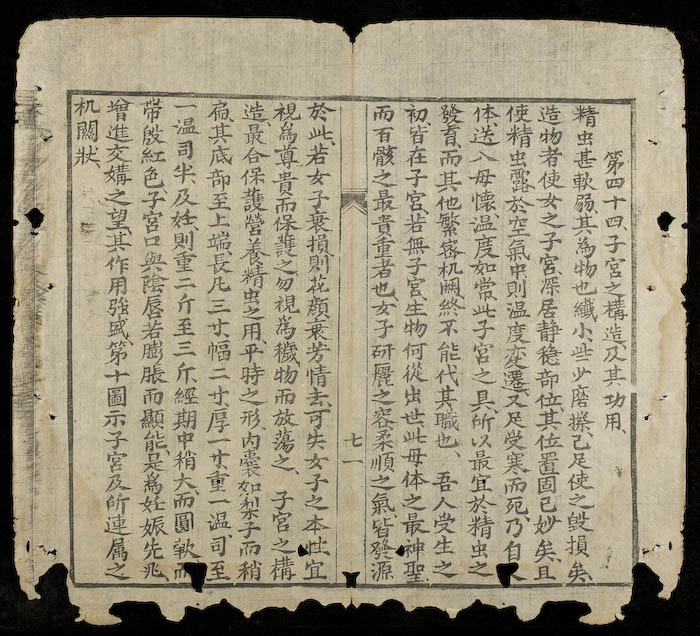 第四十四、子宮之構造、及其功用、
精虫甚軟弱、其為物也、纖小、些少磨擦、已足使之毀損矣、
造物者、使女之子宮、深居静稳部位、其位置固已妙矣、且
使精虫露於空氣中、則温度変遷、又足受寒而死、乃自
体、送入母懷、温度如常、此子宮之具、所以最宜於精虫之
發育、而其他繁密机関、終不能代其職也、吾人受生之
初、皆在子宮、若無子宮、生物何從出世、此母体之最神聖、
而百骸之最貴重者也、女子研麗之容、柔順之氣、皆發源
七一
於此、若女子衰損、則花顔衰、芳情去、可失女子之本性、宜
視為尊貴、而保護之、勿視為穢物、而放蕩之、子宮之構
造、最合保護營養精虫之用、平時之形、内囊如梨子而稍
扁、其底部至上端、長凡三寸、幅二寸、厚一寸、重一温司、至
一温司半、及妊、則重二斤至三斤、經期中稍大、而圓軟、而
带殷紅色、子宮口與陰唇、若膨脹而顯、能是為妊娠先兆、
增進交媾之望、其作用強盛、第十圖示子宮及所連属之
机関状